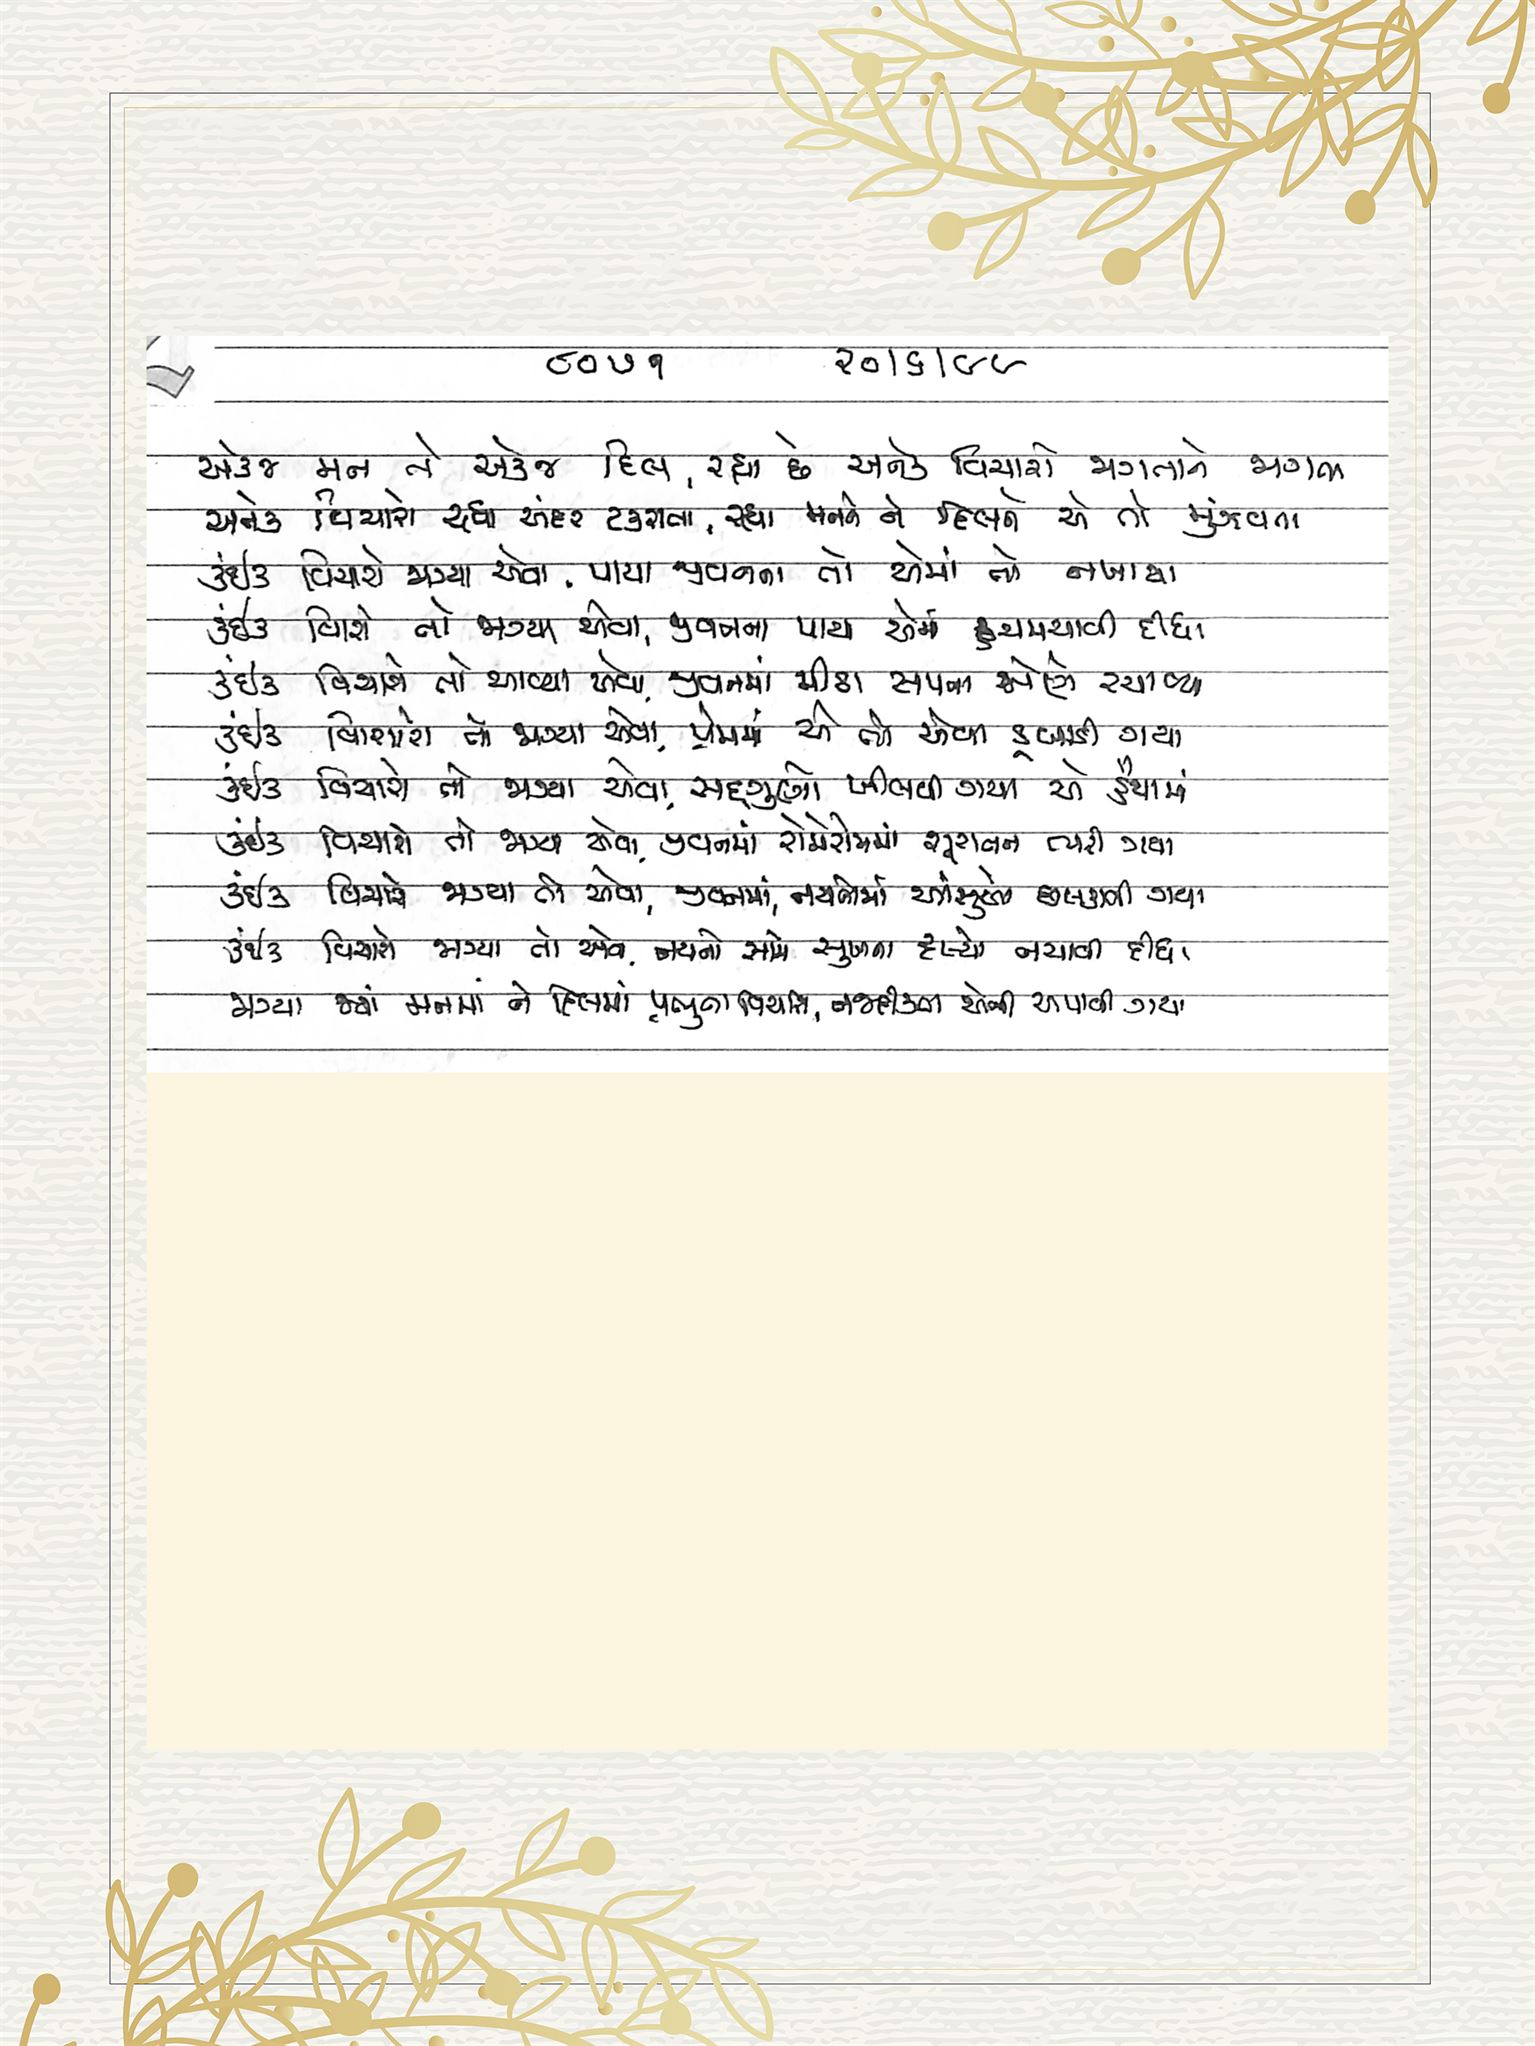 ૮૦૫૧ ૨૦/૬/૯૯
એક જ મન ને એક જ દિલ, રહ્યા છે અનેક વિચારો જાગતાને જાગતા
અનેક વિચારો રહ્યા અંદર ટકરાતા, રહ્યા મનને ને દિલને એ તો મુંઝવતા
કંઈક વિચારો જાગ્યા એવા, પાયા જીવનના તો એમાં તો નખાયા
કંઈક વિચારો તો જાગ્યા એવા, જીવનના પાયા એમાં હચમચાવી દીધા
કંઈક વિચારો તો આવ્યા એવા, જીવનમાં મીઠા સપના એણે રચાવ્યા
કંઈક વિચારો તો જાગ્યા એવા, પ્રેમમાં એ તો એવા ડુબાડી ગયા
કંઈક વિચારો તો જાગ્યા એવા, સદ્ગુણો ખીલવી ગયા એ હૈયામાં
કંઈક વિચારો તો જાગ્યા એવા, જીવનમાં રોમેરોમમાં શૂરાતન ભરી ગયા
કંઈક વિચારો જાગ્યા તો એવા, જીવનમાં, નયનોમાં આંસુઓ છલકાવી ગયા
કંઈક વિચારો જાગ્યા તો એવા, નયનો સામે સુખના દૃશ્યો નચાવી દીધા
જાગ્યા જ્યાં મનમાં ને દિલમાં પ્રભુના વિચારો, નજદીકતા એની અપાવી ગયા